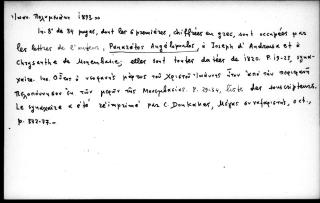 Πελοποννήσου 1893.—
In-8° de 34 pages, dont les 6 premières, chiffrées en grec, sont occupées par
les lettres de l'auteur, Panaretos Angélopoulos, à Joseph d'Androusa et à
Chrysanthe de Monembasie; elles sont toutes datées de 1820. P. 19-25, synaxaire
inc. Οὗτος ὁ νεοφανὴς μάρτυς τοῦ Χριστοῦ Ἰωάννης ἦτον ἀπὸ τὴν περιφανῆ
Πελοπόννησον ἐκ τῶν μερῶν τῆς Μονεμβασίας. P. 29-34, liste des souscripteurs.
Le synaxaire a été réimprimé par C. Doukakes, Μέγας συναξαριστής, oct.,
p. 372-77.—